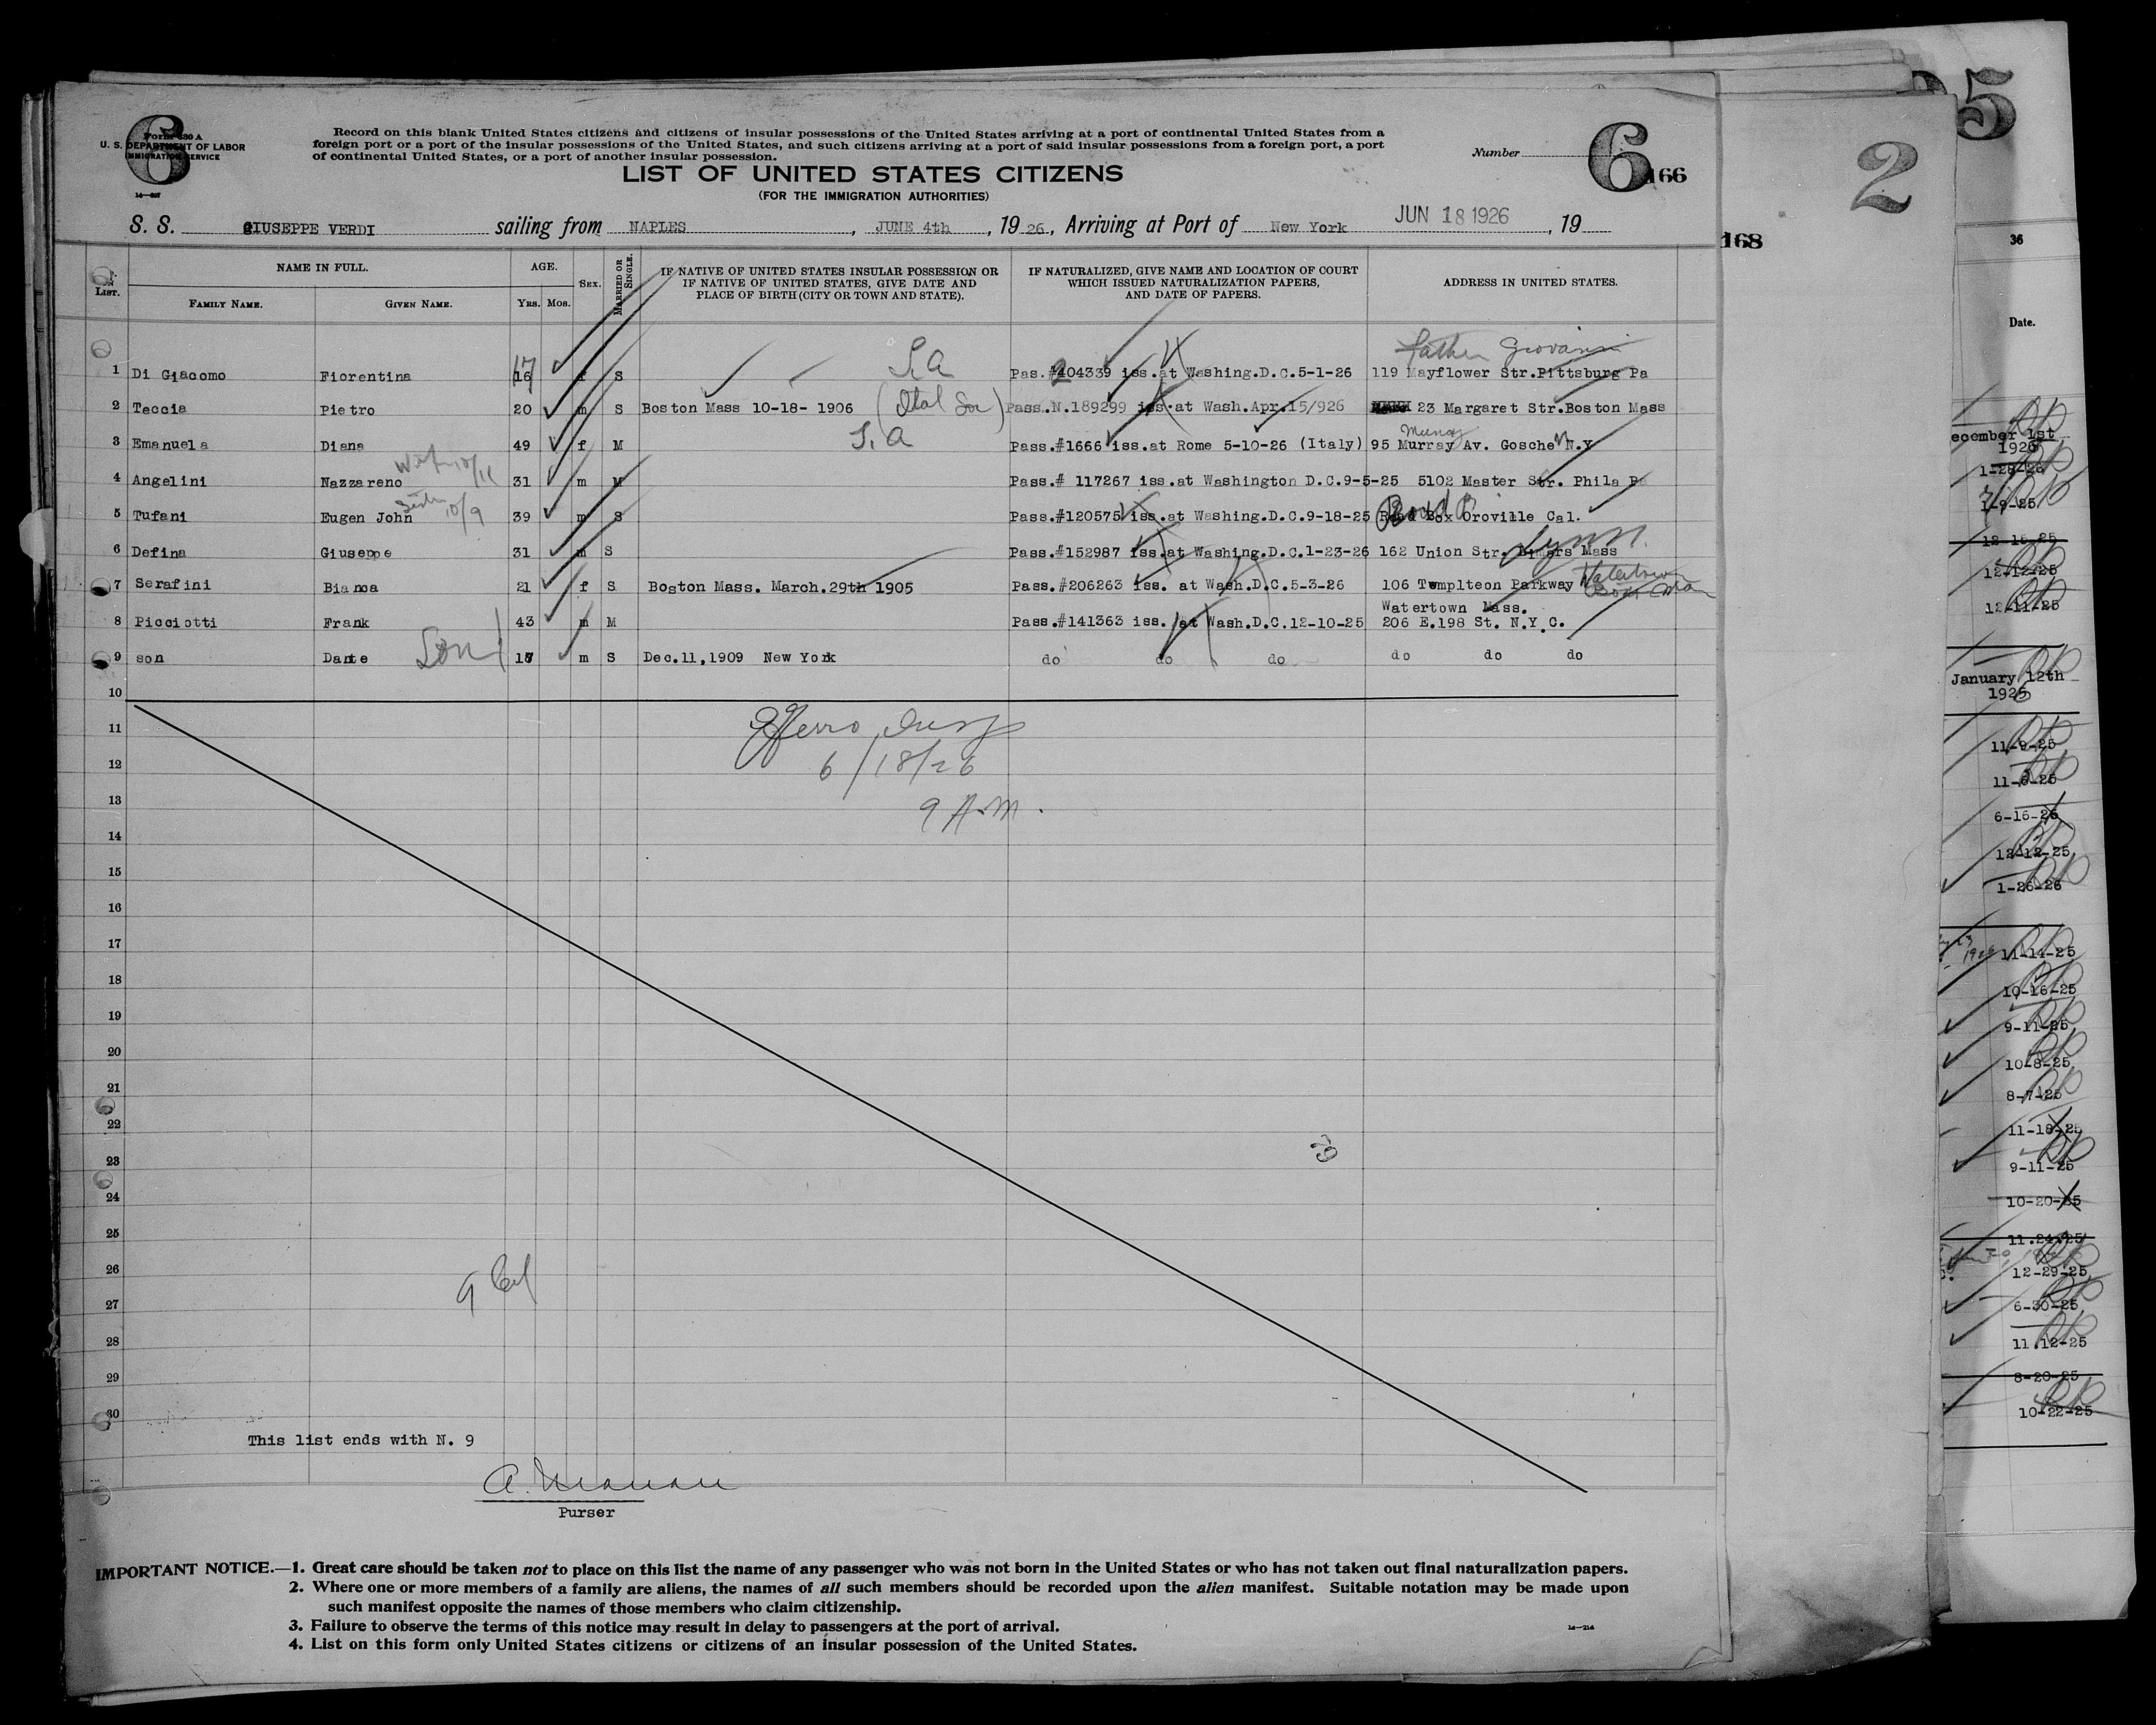 Form 630 A
U. S. DEPARTMENT OF LABOR
IMMIGRATION SERVICE
14—407
6
Record on this blank United States citizens and citizens of insular possessions of the United States arriving at a port of continental United States from a
foreign port or a port of the insular possessions of the United States, and such citizens arriving at a port of said insular possessions from a foreign port, a port
of continental United States, or a port of another insular possession.
Number
6
166
LIST OF UNITED STATES CITIZENS
(FOR THE IMMIGRATION AUTHORITIES)
S. S. GIUSEPPE VERDI sailing from NAPLES, JUNE 4th, 19 26, Arriving at Port of New York JUN 18 1926, 19
LIST. NAME IN FULL. AGE. SEX. MARRIED OR SINGLE. IF NATIVE OF UNITED STATES INSULAR POSSESSION OR IF NATIVE OF UNITED STATES, GIVE DATE AND PLACE OF BIRTH (CITY OR TOWN AND STATE). IF NATURALIZED, GIVE NAME AND LOCATION OF COURT WHICH ISSUED NATURALIZATION PAPERS, AND DATE OF PAPERS. ADDRESS IN UNITED STATES.
FAMILY NAME. GIVEN NAME. YRS. MOS.
Father Giovanni
1 Di Giacomo Fiorentina 16 17 f S Pas.#204339 iss.at Washing.D.C.5-1-26 119 Mayflower Str.Pittsburg Pa
2 Teccia Pietro 20 m S Boston Mass 10-18- 1906 Pass.N.189299 iss.at Wash.Apr.15/926 23 Margaret Str.Boston Mass
3 Emanuela Diana 49 f M Pass.#1666 iss.at Rome 5-10-26 (Italy) 95 Murray Av. Goshen N.Y
4 Angelini Nazzareno 31 m M Pass.# 117267 iss.at Washington D.C.9-5-25 5102 Master Str. Phila Pa
5 Tufani Eugen John 39 m S Pass.#120575 iss.at Washing.D.C.9-18-25 Box Oroville Cal.
6 Defina Giuseppe 31 m S Pass.#152987 iss.at Washing.D.C.1-23-26 162 Union Str. Lynn Mass
7 Serafini Bianca 21 f S Boston Mass. March.29th 1905 Pass.#206263 iss. at Wash.D.C.5-3-26 106 Templteon Parkway Watertown
Watertown Mass.
8 Picciotti Frank 43 m M Pass.#141363 iss. at Wash.D.C.12-10-25 206 E.198 St. N.Y.C.
9 son Dante Son m S Dec.11,1909 New York do do do do do do
10
11
6/18/26
12
9 A.M.
13
14
15
16
17
18
19
20
21
22
23
24
25
26
27
28
29
30
This list ends with N. 9
Purser
IMPORTANT NOTICE.—1. Great care should be taken not to place on this list the name of any passenger who was not born in the United States or who has not taken out final naturalization papers.
2. Where one or more members of a family are aliens, the names of all such members should be recorded upon the alien manifest. Suitable notation may be made upon
such manifest opposite the names of those members who claim citizenship.
3. Failure to observe the terms of this notice may result in delay to passengers at the port of arrival.
4. List on this form only United States citizens or citizens of an insular possession of the United States.
14—214
2
168
5
36
Date.
ecember 1st
1925
1-28-26
7-9-25
12-15-25
12-12-25
12-11-25
January 12th
1926
11-9-25
11-6-25
6-16-26
12-12-25
1-26-26
11-14-25
10-16-25
9-11-25
10-8-25
8-7-25
11-18-25
9-11-25
10-20-25
11.24.25
12-29-25
6-30-25
11.12-25
8-20-25
10-22-25